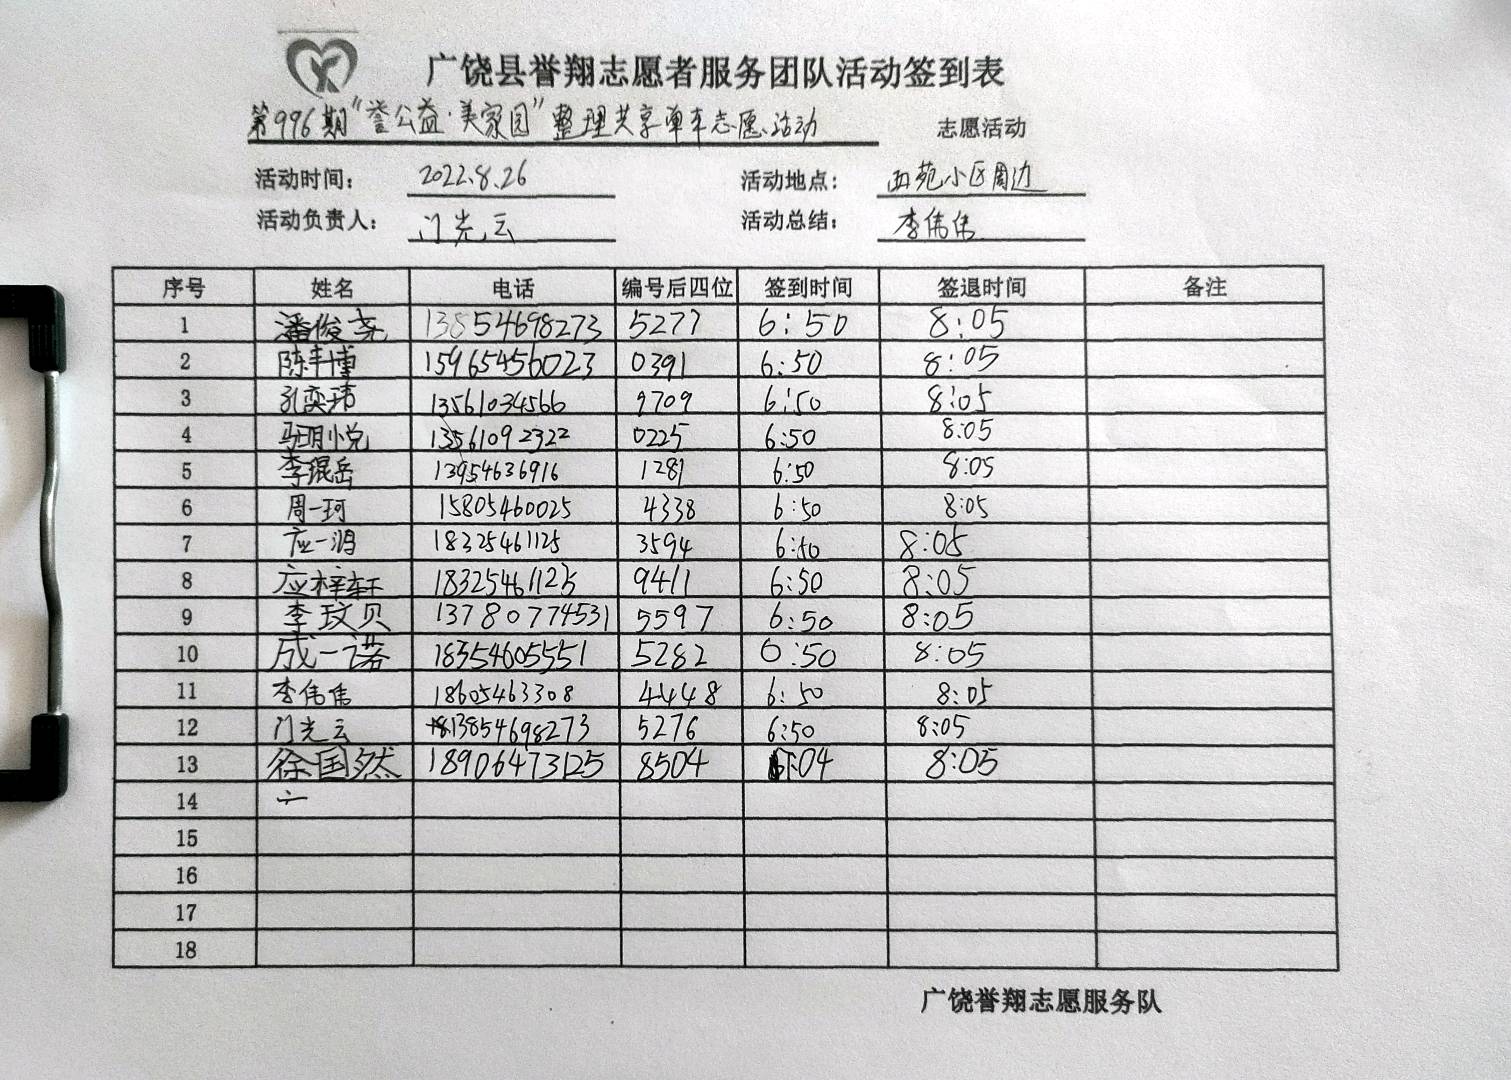 广饶县誉翔志愿者服务团队活动签到表
第996期“誉公益·美家园”整理共享单车志愿活动 志愿活动
活动时间: 2022.8.26 活动地点: 西苑小区周边
活动负责人: 门光云 活动总结: 李伟伟
序号 姓名 电话 编号后四位 签到时间 签退时间 备注
1 潘俊尧 13854698273 5277 6:50 8:05
2 陈丰博 15965456023 0391 6:50 8:05
3 孔奕玮 13561034566 9709 6:50 8:05
4 明悦 13561092322 0225 6:50 8:05
5 李琨岳 13954636916 1281 6:50 8:05
6 周一珂 15805460025 4338 6:50 8:05
7 应一鸿 18325461125 3594 6:50 8:05
8 应梓轩 18325461125 9411 6:50 8:05
9 李玟贝 13780774531 5597 6:50 8:05
10 成一诺 18354605551 5282 6:50 8:05
11 李伟伟 18605463308 4448 6:50 8:05
12 门光云 13854698273 5276 6:50 8:05
13 徐国然 18906473125 8504 :04 8:05
14
15
16
17
18
广饶誉翔志愿服务队